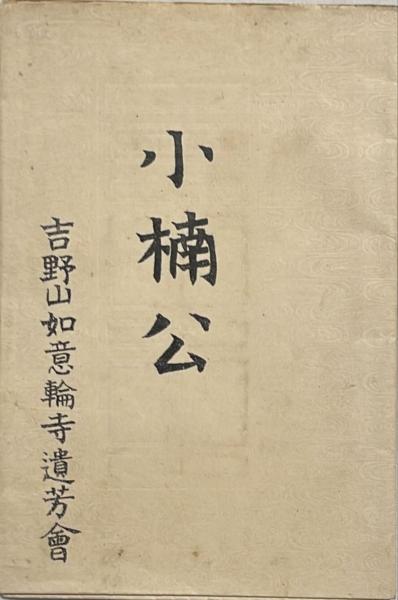 小楠公
吉野山如意輪寺遺芳會